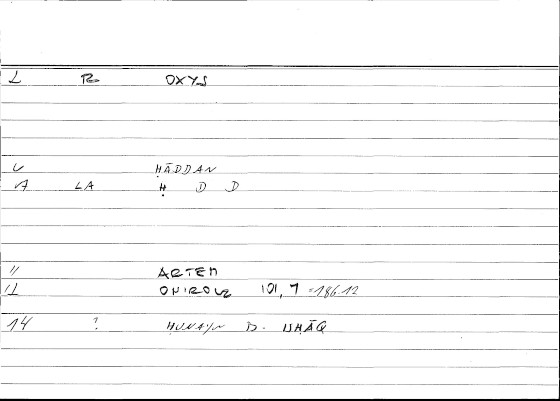 1 R OXYS
6 ḤĀDDAN
7A LA Ḥ D D
11 ARTEM
12 ONIROCR 101, 7 = 186.12
14 ? ḤUNAYN B. ISḤĀQ